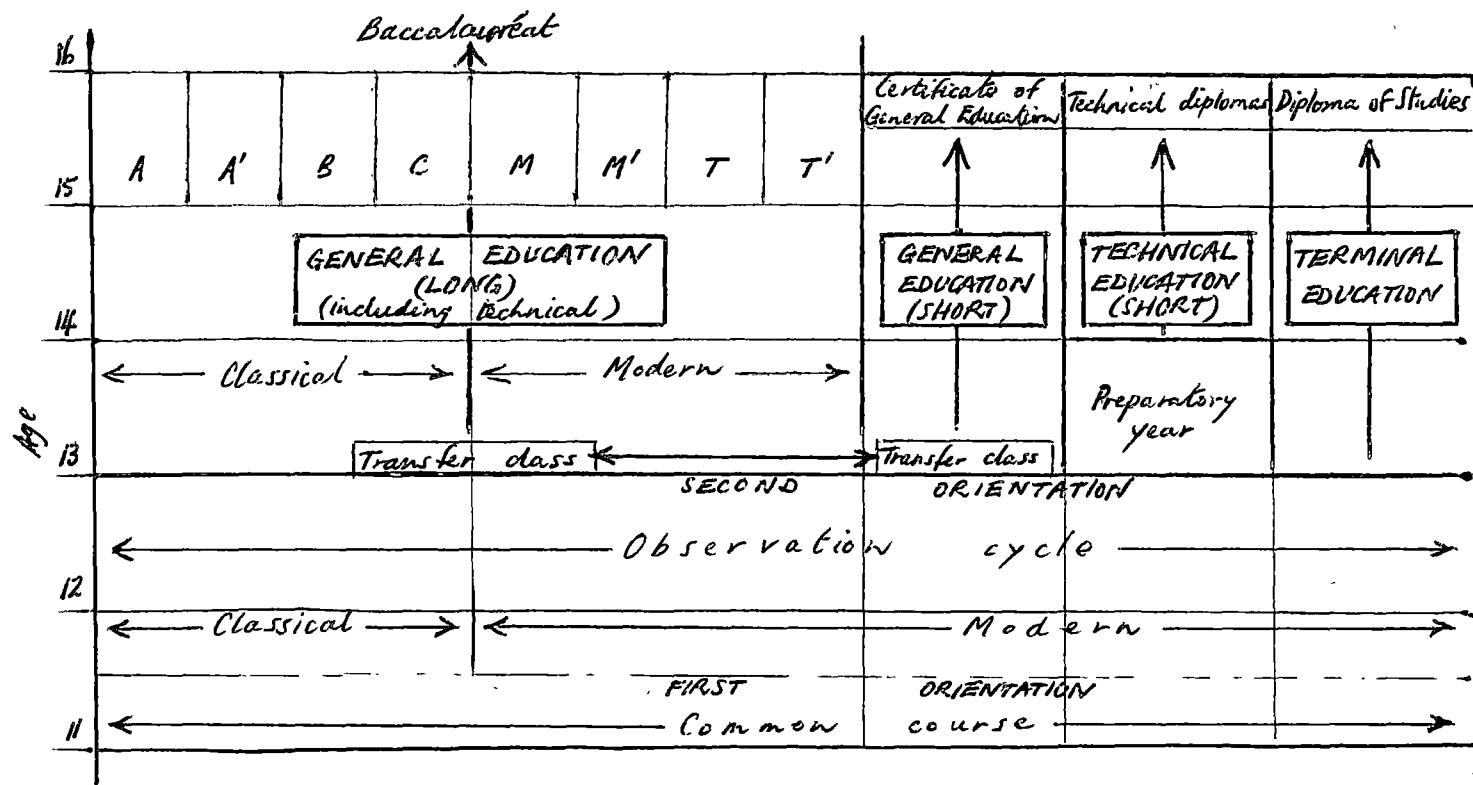 Baccalauréat
16
Certificate of
General Education
Technical diplomas
Diploma of Studies
A A' B C M M' T T'
15
GENERAL EDUCATION
(LONG)
(including technical)
GENERAL
EDUCATION
(SHORT)
TECHNICAL
EDUCATION
(SHORT)
TERMINAL
EDUCATION
14
Classical Modern
Preparatory
year
Age
13
Transfer class Transfer class
SECOND ORIENTATION
Observation cycle
12
Classical Modern
FIRST ORIENTATION
11
Common course